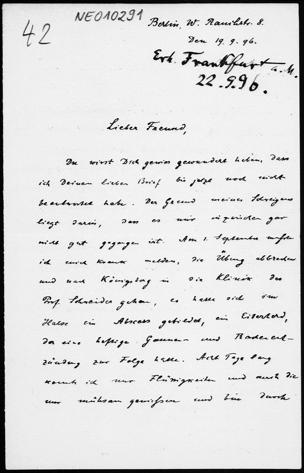 42
NE010291
Berlin, W. Rauchstr. 8.
Den 19. 9. 96.
Erh. Frankfurt a. M.
22. 9. 96.
Lieber Freund,
Du wirst Dich gewiss gewundert haben, dass
ich Deinen lieben Brief bis jetzt noch nicht
beantwortet habe. Der Grund meines Schweigens
liegt darin, dass es mir inzwischen gar
nicht gut gegangen ist. Am 1. September musste
ich mich krank melden, die Übung abbrechen
und nach Königsberg in die Klinik des
Prof. Schneider gehen, es hatte sich im
Halse ein Abscess gebildet, ein Eiterherd,
der eine heftige Gaumen- und Rachenent-
zündung zur Folge hatte. Acht Tage lang
konnte ich nur Flüssigkeiten und auch die
nur mühsam geniessen und bin durch